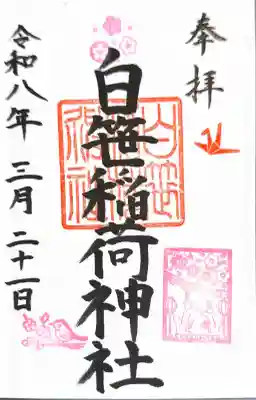 奉拝
白笹稲荷神社
令和八年 三月 二十一日